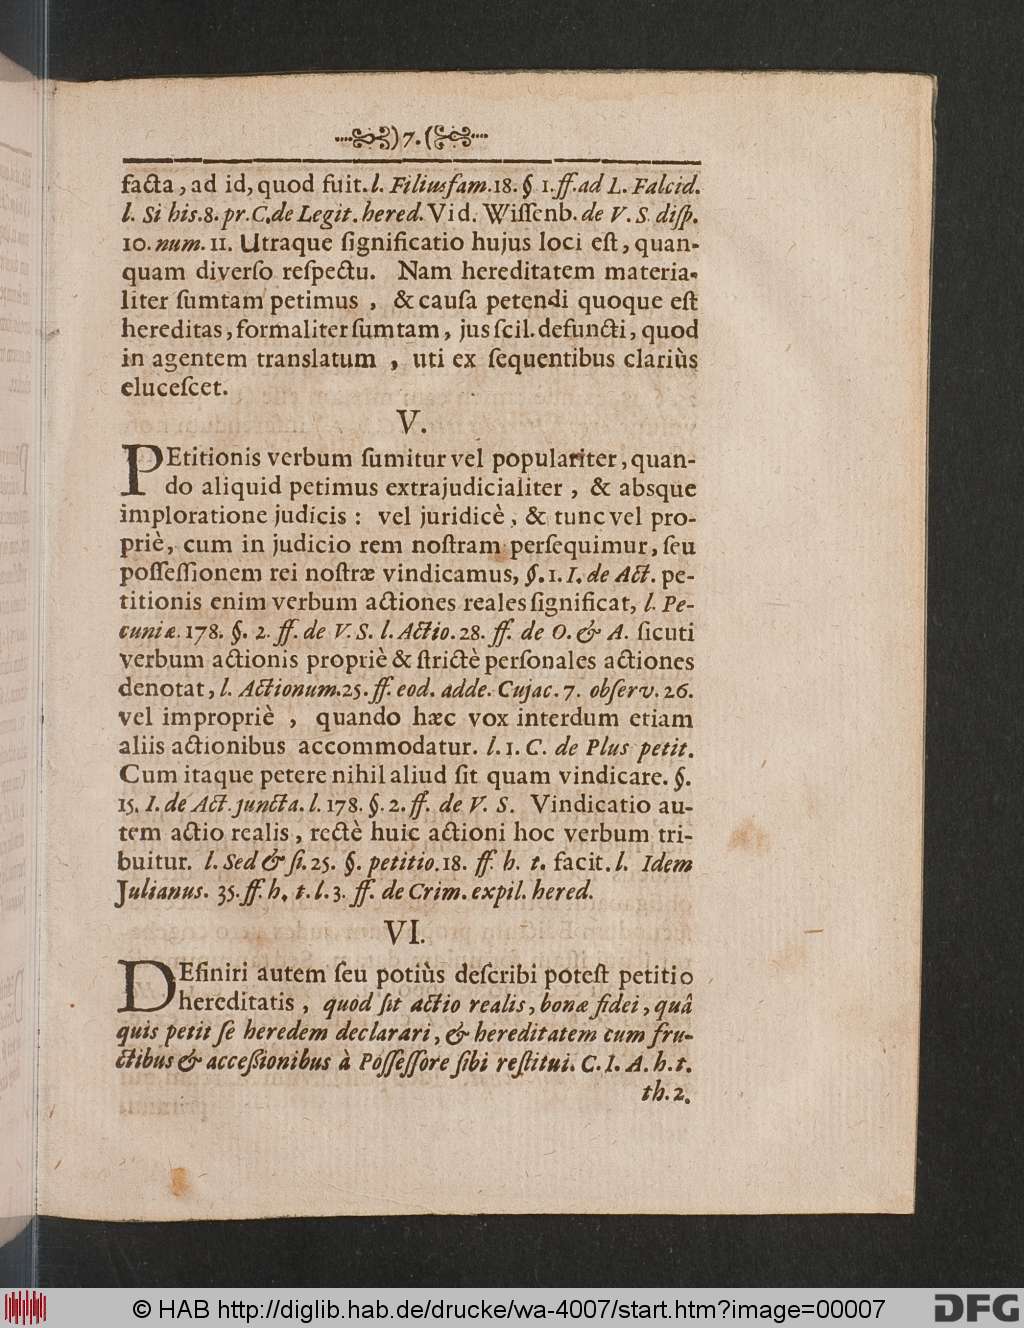 )7.(
facta, ad id, quod fuit. l. Filiusfam. 18. § 1. ff. ad L. Falcid.
l. Si his. 8. pr. C. de Legit. hered. Vid. Wiſſenb. de V. S. diſp.
10. num. 11. Utraque ſignificatio hujus loci eſt, quan-
quam diverſo reſpectu. Nam hereditatem materia-
liter ſumtam petimus, & cauſa petendi quoque eſt
hereditas, formaliter ſumtam, jus ſcil. defuncti, quod
in agentem translatum, uti ex ſequentibus clariùs
eluceſcet.
V.
PEtitionis verbum ſumitur vel populariter, quan-
do aliquid petimus extrajudicialiter, & absque
imploratione judicis: vel juridicè, & tunc vel pro-
priè, cum in judicio rem noſtram perſequimur, ſeu
poſſeſſionem rei noſtræ vindicamus, §. 1. I. de Act. pe-
titionis enim verbum actiones reales ſignificat, l. Pe-
cuniæ. 178. §. 2. ff. de V. S. l. Actio. 28. ff. de O. & A. ſicuti
verbum actionis propriè & ſtrictè perſonales actiones
denotat, l. Actionum. 25. ff. eod. adde. Cujac. 7. obſerv. 26.
vel impropriè, quando hæc vox interdum etiam
aliis actionibus accommodatur. l. 1. C. de Plus petit.
Cum itaque petere nihil aliud ſit quam vindicare. §.
15. I. de Act. juncta. l. 178. §. 2. ff. de V. S. Vindicatio au-
tem actio realis, rectè huic actioni hoc verbum tri-
buitur. l. Sed & ſi. 25. §. petitio. 18. ff. h. t. facit. l. Idem
Julianus. 35. ff. h. t. l. 3. ff. de Crim. expil. hered.
VI.
DEfiniri autem ſeu potiùs deſcribi poteſt petitio
hereditatis, quod ſit actio realis, bonæ fidei, quâ
quis petit ſe heredem declarari, & hereditatem cum fru-
ctibus & acceſſionibus à Poſſeſſore ſibi reſtitui. C. I. A. h. t.
th. 2.
© HAB http://diglib.hab.de/drucke/wa-4007/start.htm?image=00007
DFG